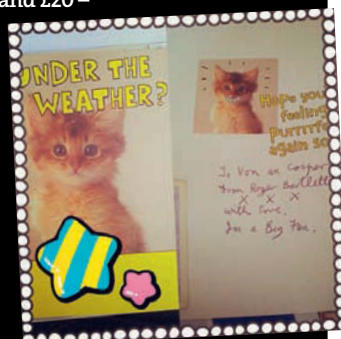 and £20 –
UNDER THE
WEATHER?
Hope you
feeling
purrrrfe
again so
To Von
from Roger Bartlett
X X X
with love,
I'm a Big Fan.